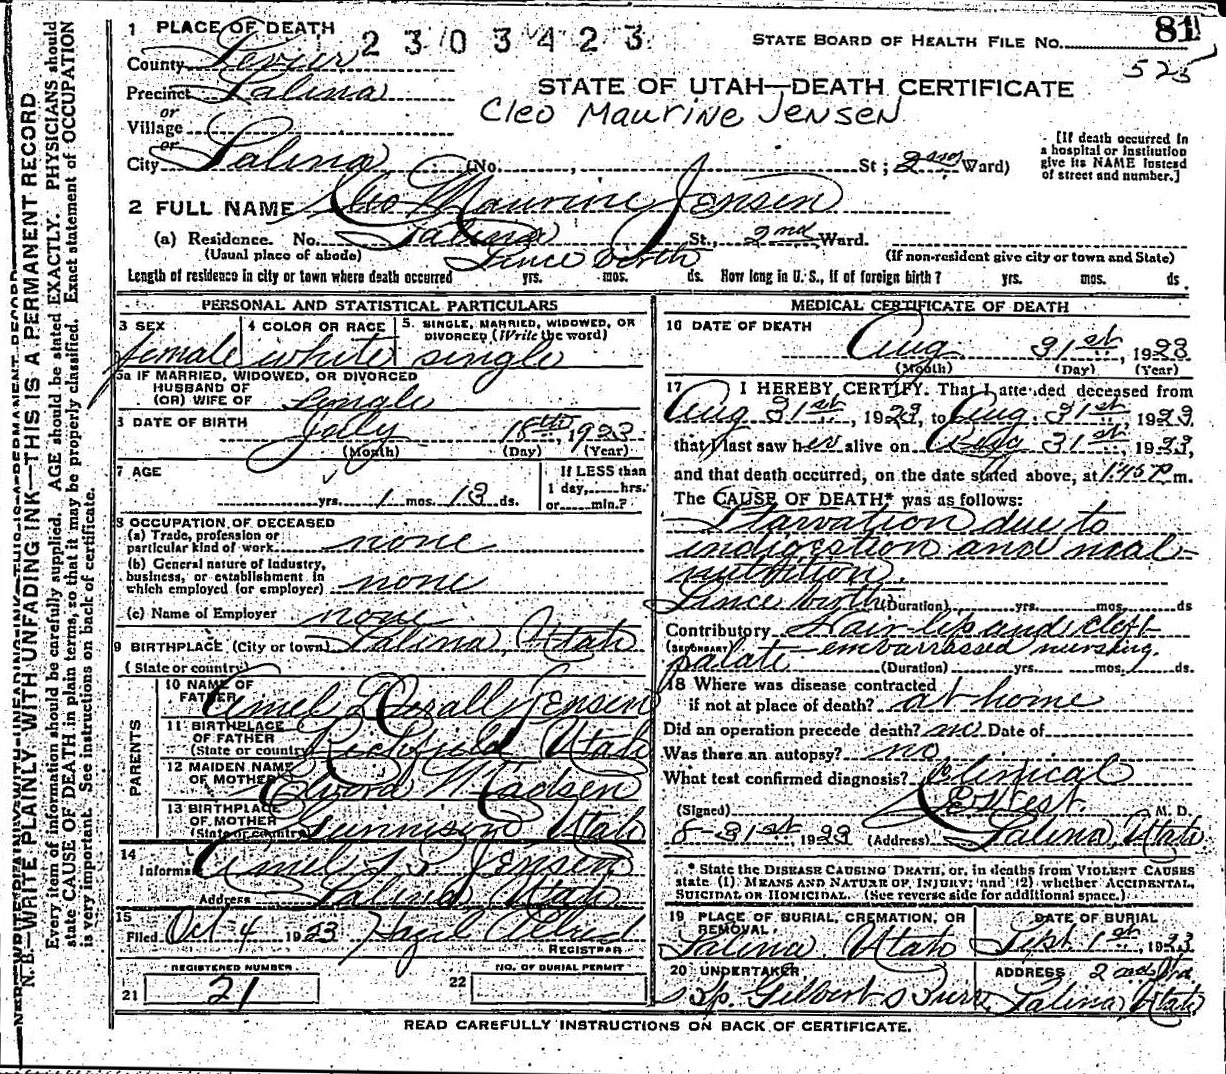 1 PLACE OF DEATH
2303423
STATE BOARD OF HEALTH FILE NO. 81
525
County Sevier
Precinct Salina
or
Village
or
City Salina (No. , St ; 2nd Ward)
STATE OF UTAH—DEATH CERTIFICATE
Cleo Maurine Jensen
[If death occurred in
a hospital or institution
give its NAME instead
of street and number.]
2 FULL NAME Cleo Maurine Jensen
(a) Residence. No. Salina St., 2nd Ward.
(Usual place of abode) (If non-resident give city or town and State)
Since birth
Length of residence in city or town where death occurred yrs. mos. ds. How long in U. S., if of foreign birth ? yrs. mos. ds.
PERSONAL AND STATISTICAL PARTICULARS
3 SEX
female
4 COLOR OR RACE
white
5. SINGLE, MARRIED, WIDOWED, OR
DIVORCED (Write the word)
single
5a IF MARRIED, WIDOWED, OR DIVORCED
HUSBAND OF
(OR) WIFE OF Single
DATE OF BIRTH July 18th, 1923
(Month) (Day) (Year)
7 AGE
yrs. 1 mos. 13 ds.
If LESS than
1 day, hrs.
or min.?
8 OCCUPATION OF DECEASED
(a) Trade, profession or
particular kind of work none
(b) General nature of industry,
business, or establishment in
which employed (or employer) none
(c) Name of Employer none
9 BIRTHPLACE (City or town) Salina, Utah
(State or country)
PARENTS
10 NAME OF
FATHER Jensen
11 BIRTHPLACE
OF FATHER
(State or country) Richfield Utah
12 MAIDEN NAME
OF MOTHER Madsen
13 BIRTHPLACE
OF MOTHER
(State or country) Gunnison, Utah
14
Informant Jensen
Address Salina, Utah
15
Filed Oct 4 1923
REGISTRAR
REGISTERED NUMBER
21 21
NO. OF BURIAL PERMIT
22
MEDICAL CERTIFICATE OF DEATH
16 DATE OF DEATH
Aug 31st, 1923
(Month) (Day) (Year)
17 I HEREBY CERTIFY. That I attended deceased from
Aug 31st, 1923, to Aug. 31st 1923
that I last saw her alive on Aug 31st, 1923,
and that death occurred, on the date stated above, at 1:45 P m.
The CAUSE OF DEATH* was as follows:
Starvation due to
indigestion and mal-
nutrition.
Since birth (Duration) yrs. mos. ds
Contributory Hair lip and cleft
(SECONDARY) palate — embarrassed nursing.
(Duration) yrs. mos. ds.
18 Where was disease contracted
if not at place of death? at home
Did an operation precede death? no Date of
Was there an autopsy? no
What test confirmed diagnosis? Clinical
(Signed) West. M. D.
8-31st, 1923 (Address) Salina, Utah
* State the DISEASE CAUSING DEATH, or, in deaths from VIOLENT CAUSES
state (1) MEANS AND NATURE OF INJURY; and (2) whether ACCIDENTAL,
SUICIDAL OR HOMICIDAL. (See reverse side for additional space.)
19 PLACE OF BURIAL, CREMATION, OR
REMOVAL
Salina, Utah
DATE OF BURIAL
Sept 1st, 1923
20 UNDERTAKER
Bp. Gilbert
ADDRESS 2nd Wrd
Salina, Utah
READ CAREFULLY INSTRUCTIONS ON BACK OF CERTIFICATE.
N. B.—WRITE PLAINLY WITH UNFADING INK—THIS IS A PERMANENT RECORD
Every item of information should be carefully supplied. AGE should be stated EXACTLY. PHYSICIANS should
state CAUSE OF DEATH in plain terms, so that it may be properly classified. Exact statement of OCCUPATION
is very important. See instructions on back of certificate.